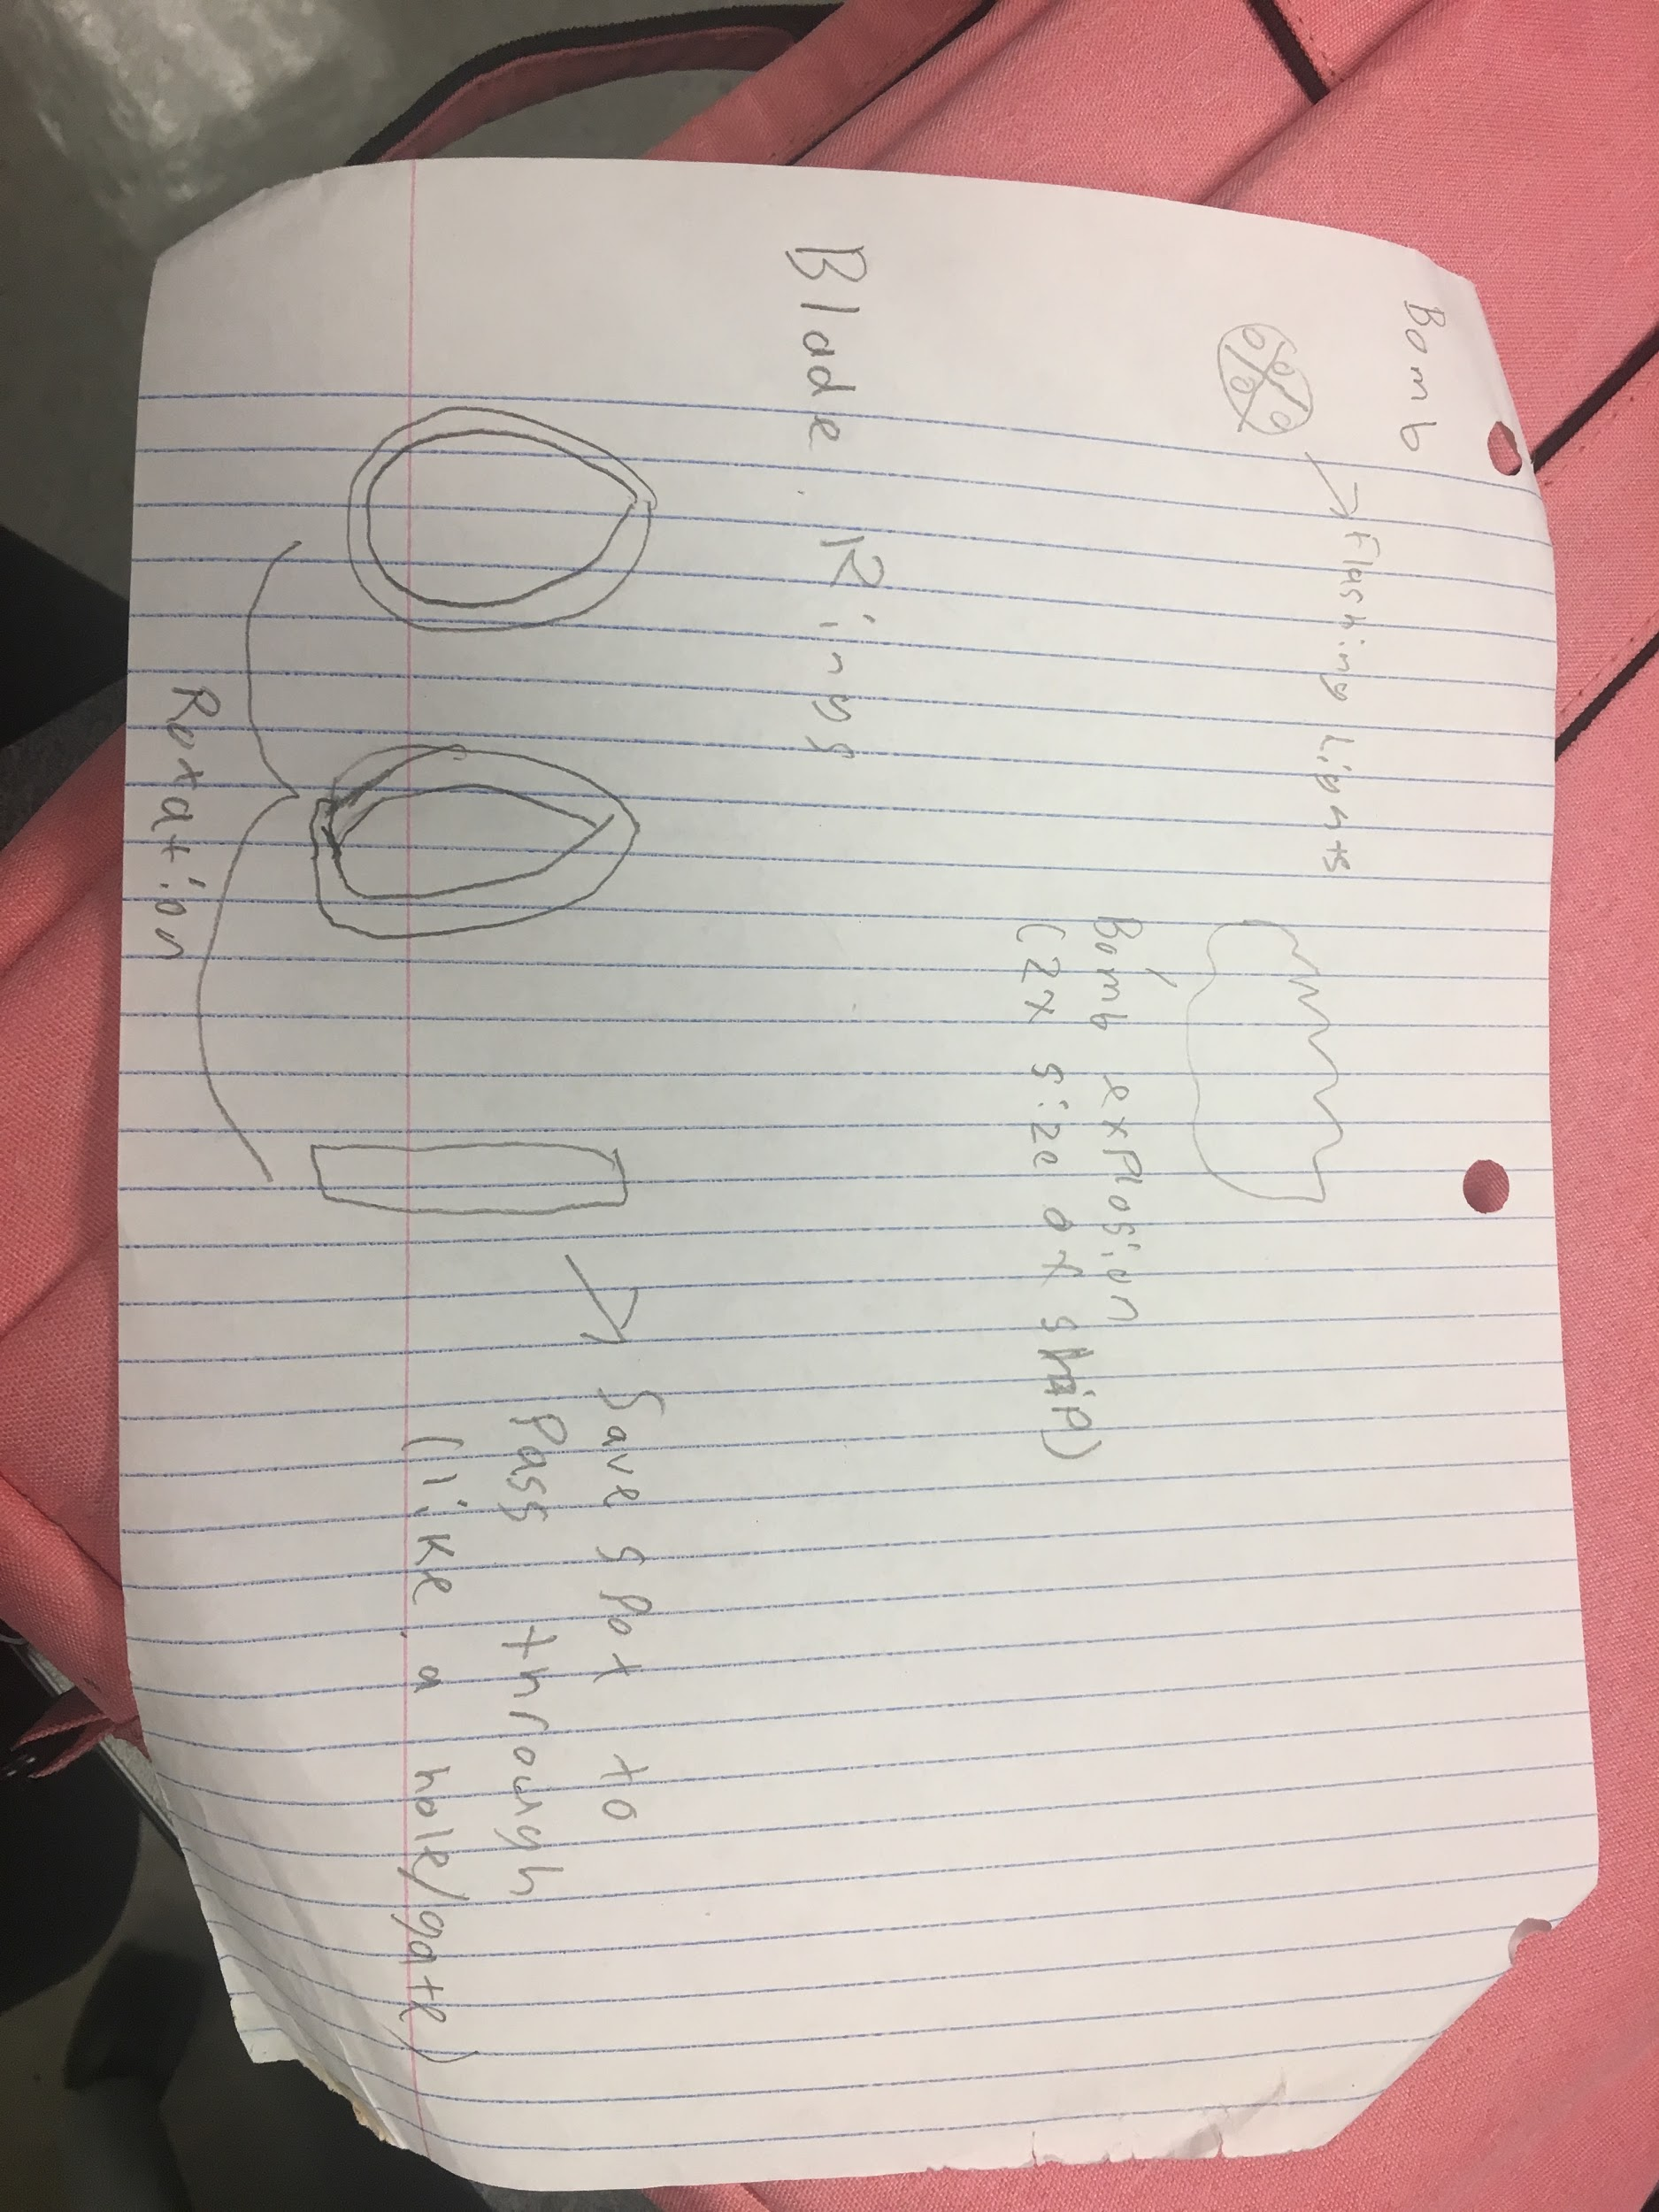 Bomb
Flashing Lights
Bomb explosion
(2x size of ship)
Blade Rings
Save spot to
Pass through
(like a hole/gate)
Rotation